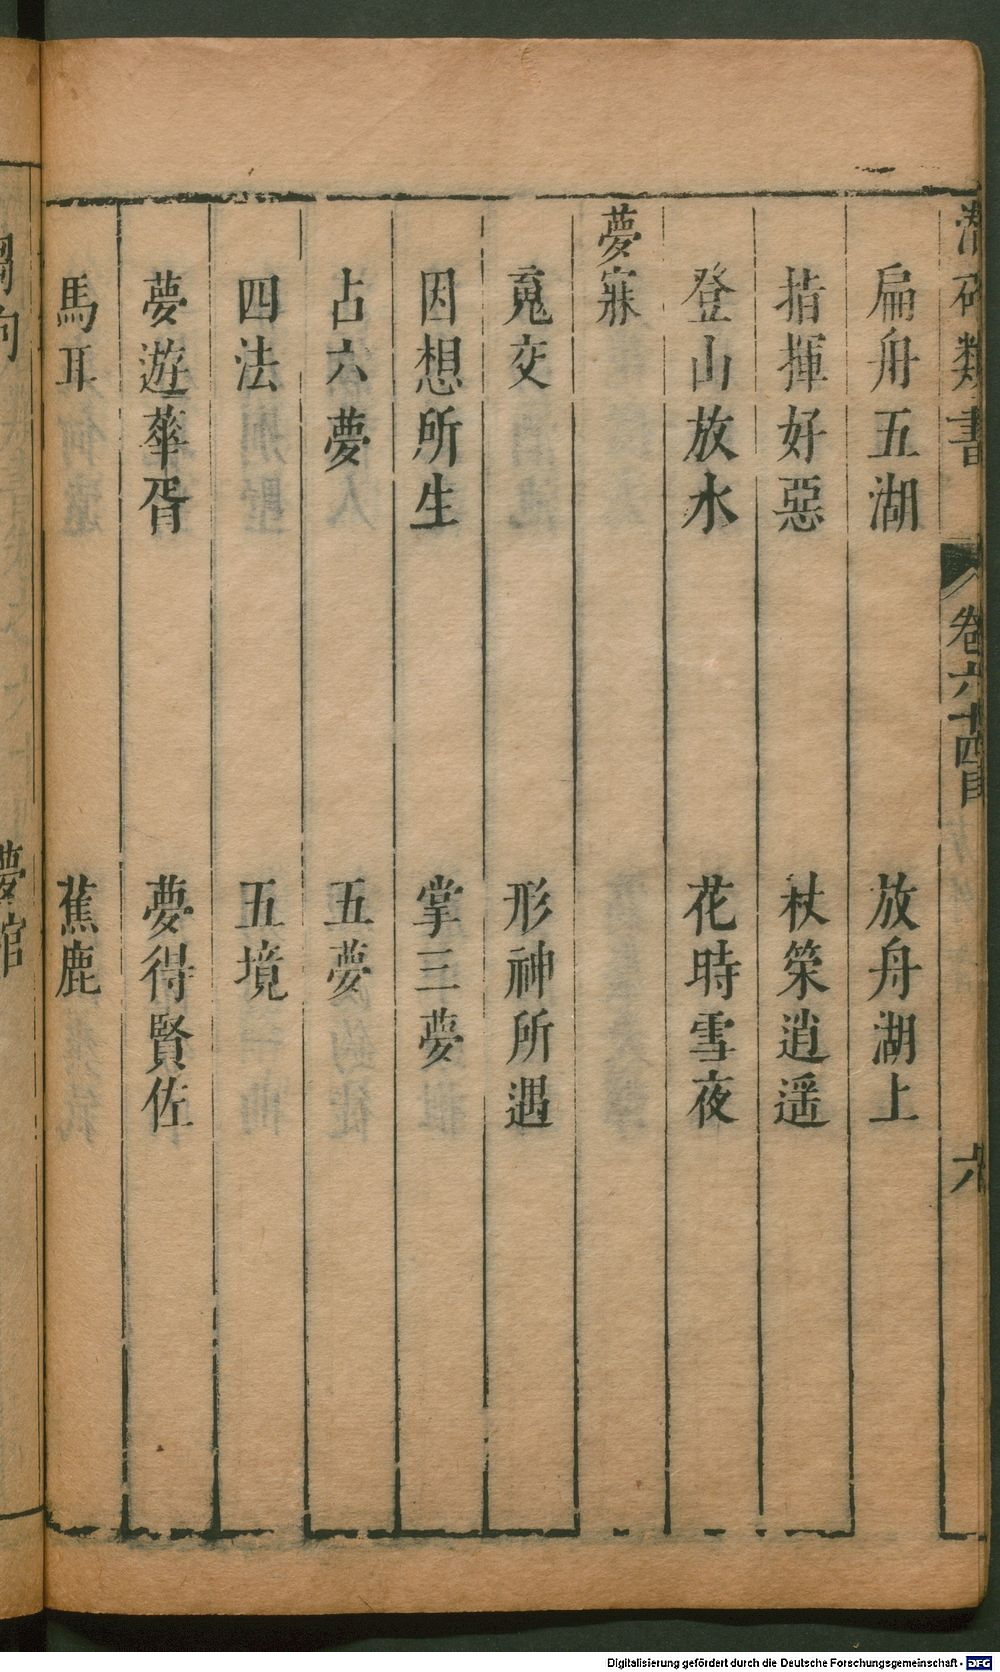 潛確類書 卷六十四目 六
扁舟五湖 放舟湖上
指揮好惡 杖笻逍遥
登山放水 花時雪夜
夢寐
䰟交 形神所遇
因想所生 掌三夢
占六夢 五夢
四法 五境
夢遊華胥 夢得賢佐
馬耳 蕉鹿
Digitalisierung gefördert durch die Deutsche Forschungsgemeinschaft - DFG